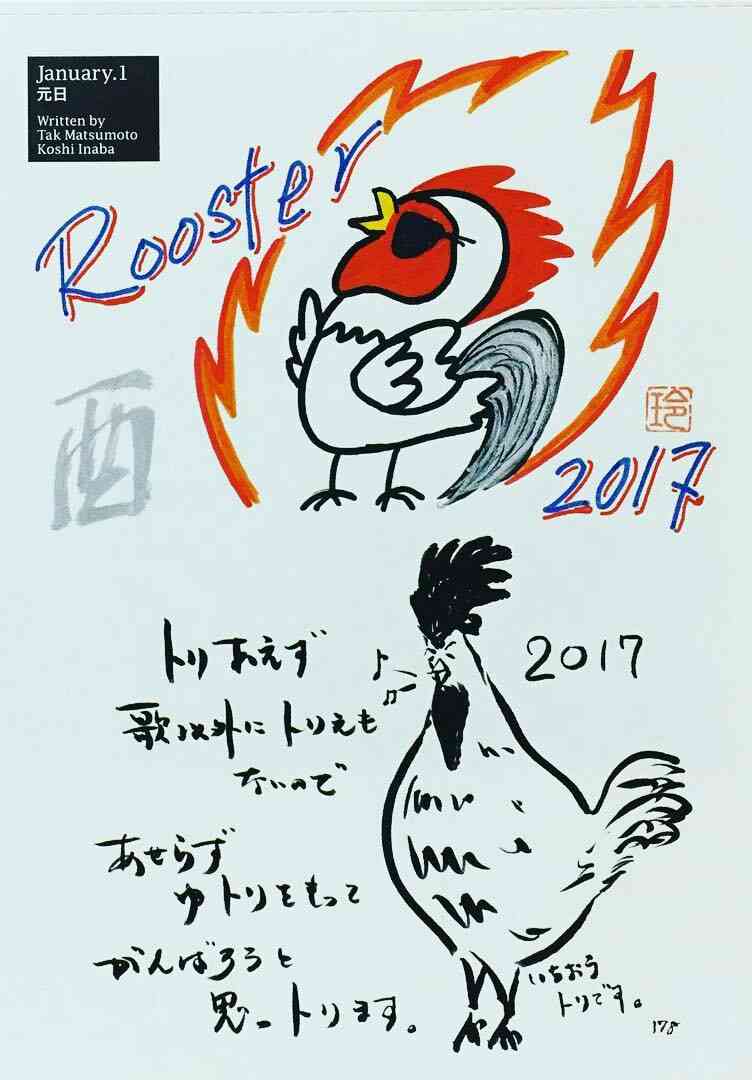 January.1
元日
Written by
Tak Matsumoto
Koshi Inaba
Rooster
酉
玲
2017
2017
トリあえず
歌以外にトリえも
ないので
あせらず
ゆトリをもって
がんばろうと
思っトリます。
いちおう
トリです。
178